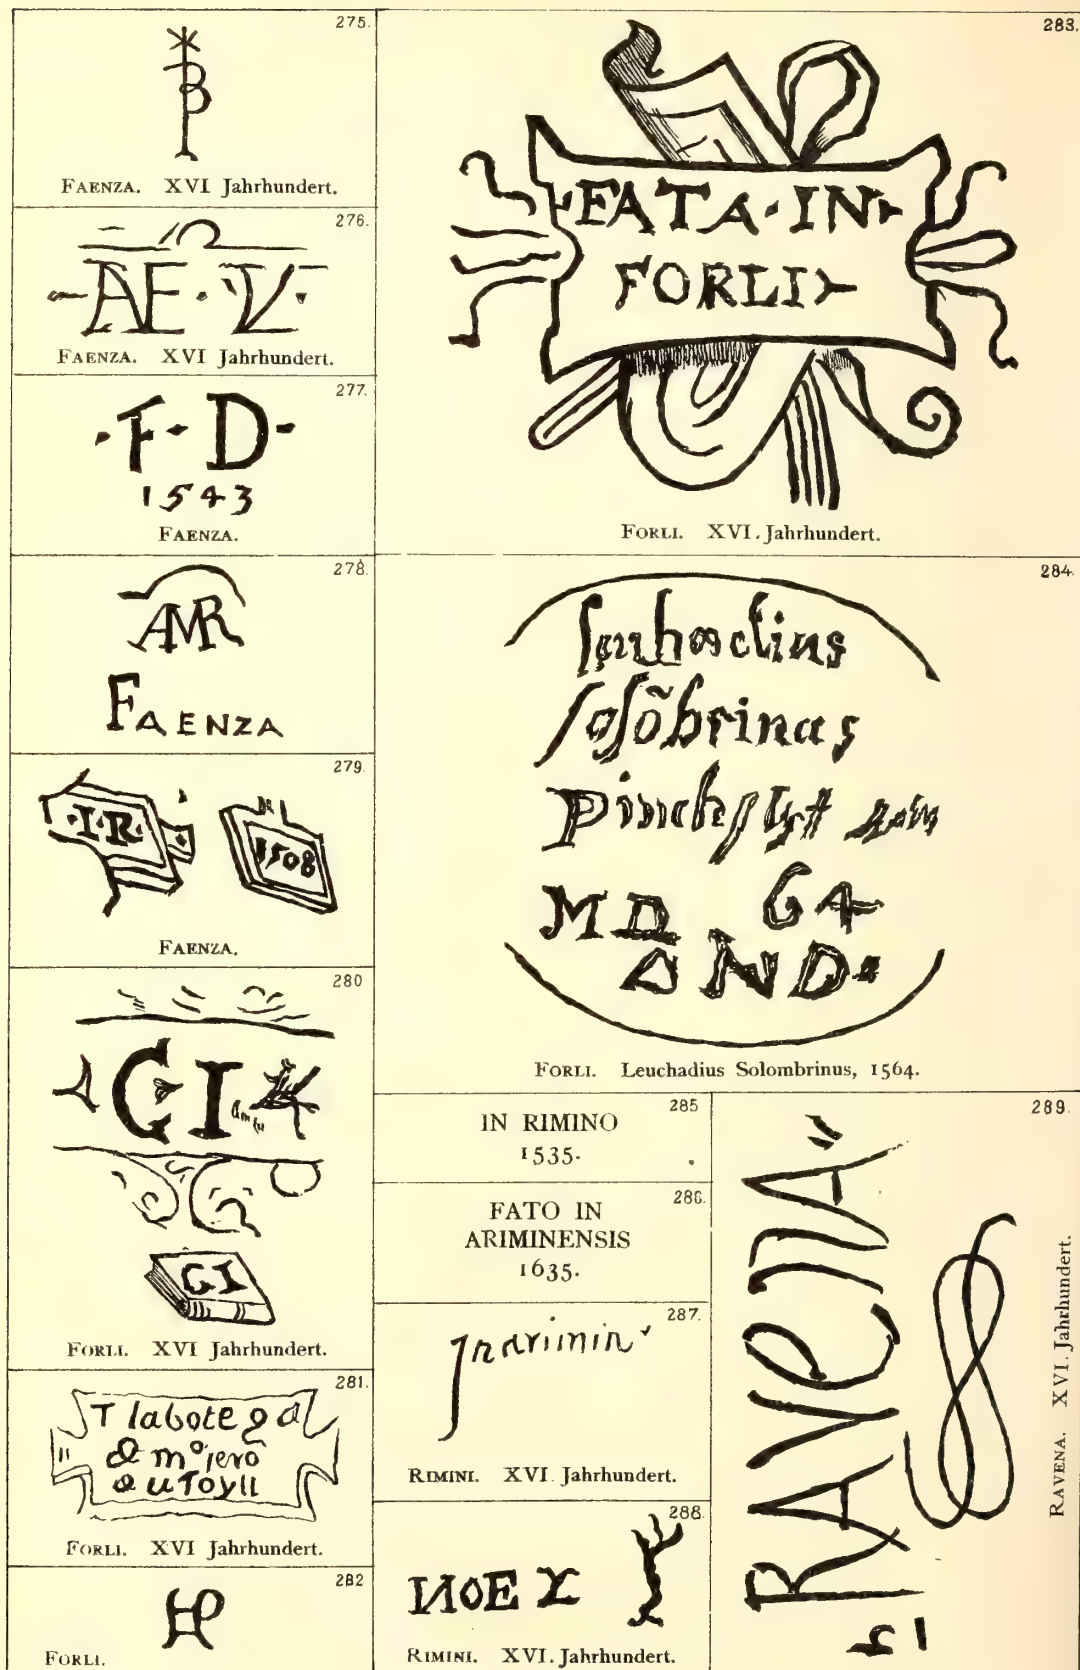 275.
FAENZA. XVI Jahrhundert.
276.
AE · V ·
FAENZA. XVI Jahrhundert.
277.
· F · D ·
1543
FAENZA.
278.
AMR
FAENZA
279.
· I · R ·
1508
FAENZA.
280
G I
G I
FORLI. XVI Jahrhundert.
281.
T labotega
d mº jero
FORLI. XVI Jahrhundert.
282
FORLI.
283.
FATA · IN
FORLI
FORLI. XVI. Jahrhundert.
284.
solõbrinus
MD 64
AND
FORLI. Leuchadius Solombrinus, 1564.
285
IN RIMINO
1535.
286.
FATO IN
ARIMINENSIS
1635.
287.
In arimin
RIMINI. XVI. Jahrhundert.
288.
NOE X
RIMINI. XVI. Jahrhundert.
289.
RAVENA
RAVENA. XVI. Jahrhundert.